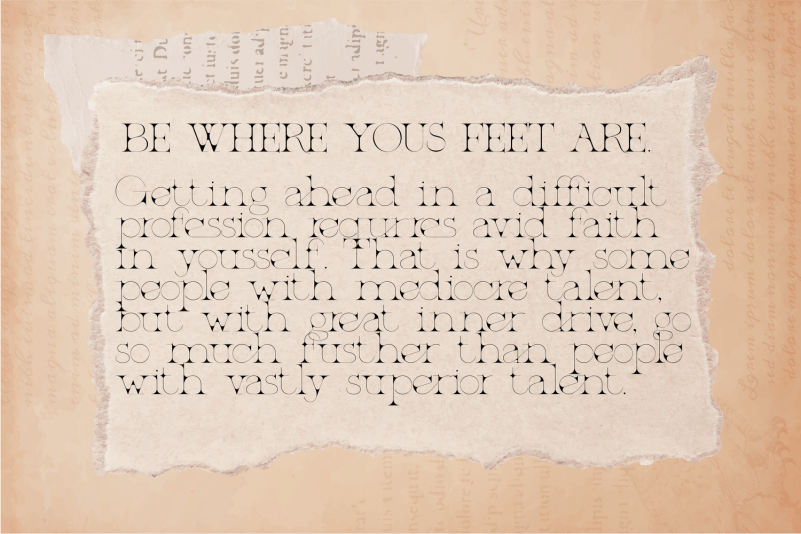 BE WHERE YOUS FEET ARE.
Getting ahead in a difficult
profession requrires avid faith
in yousself. That is why some
people with mediocre talent,
but with great inner drive, go
so much fusther than people
with vastly superior talent.